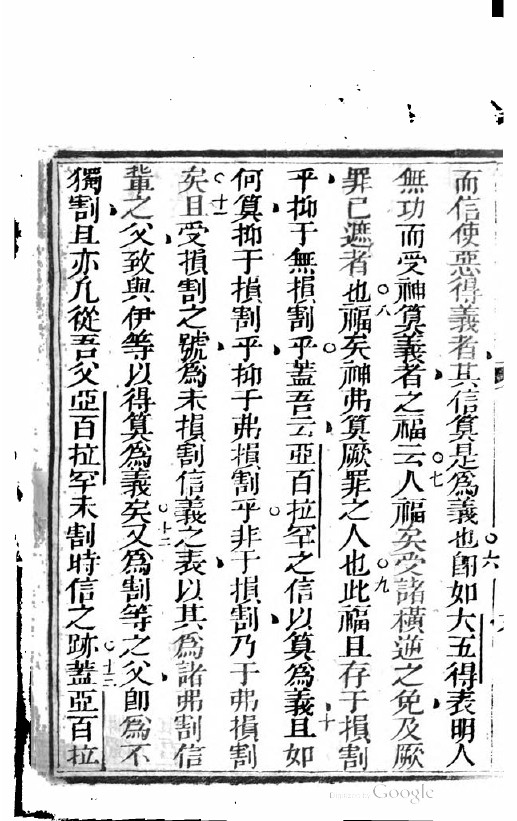 而信使惡得義者其信算是爲義也○六卽如大五得表明人
無功而受神算義者之福云○七人福矣受諸橫逆之免及厥
罪已遮者也○八福矣神弗算厥罪之人也○九此福且存于損割
乎抑于無損割乎蓋吾云亞百拉罕之信以算爲義且○十如
何算抑于損割乎抑于弗損割乎非于損割乃于弗損割
矣○十一且受損割之號爲未損割信義之表以其爲諸弗割信
輩之父致與伊等以得算爲義矣○十二又爲割等之父卽爲不
獨割且亦凡從吾父亞百拉罕未割時信之跡○十三蓋亞百拉
Digitized by Google